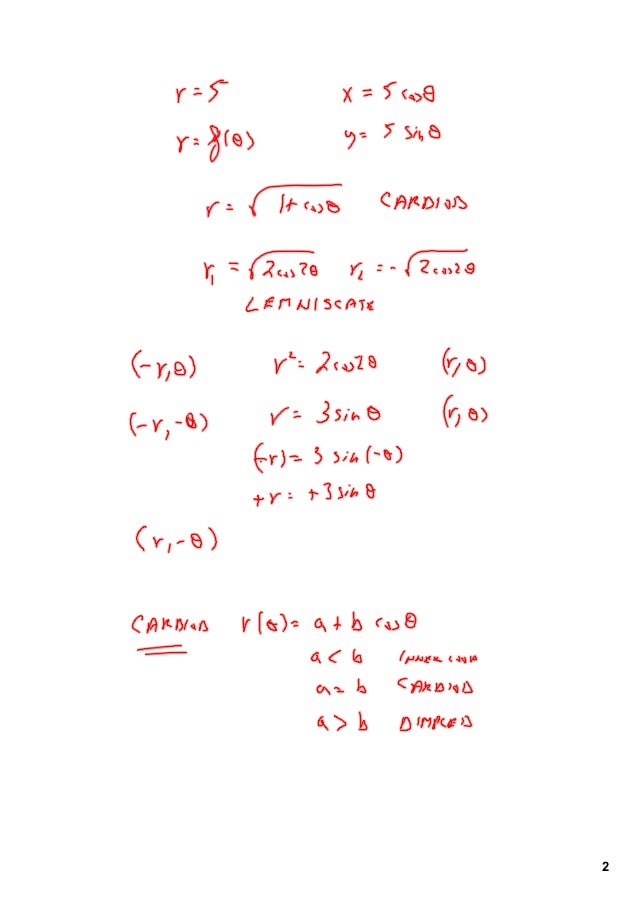 r = 5 x = 5 cosθ
r = f(θ) y = 5 sin θ
r = √(1 + cosθ) CARDIOD
r₁ = √(2cos2θ) r₂ = -√(2cos2θ)
LEMNISCATE
(-r, θ) r² = 2cos2θ (r, θ)
(-r, -θ) r = 3 sin θ (r, θ)
(-r) = 3 sin(-θ)
+r = +3 sin θ
(r, -θ)
CARDIOD r(θ) = a + b cosθ
a < b INNER LOOP
a = b CARDIOD
a > b DIMPLED
2